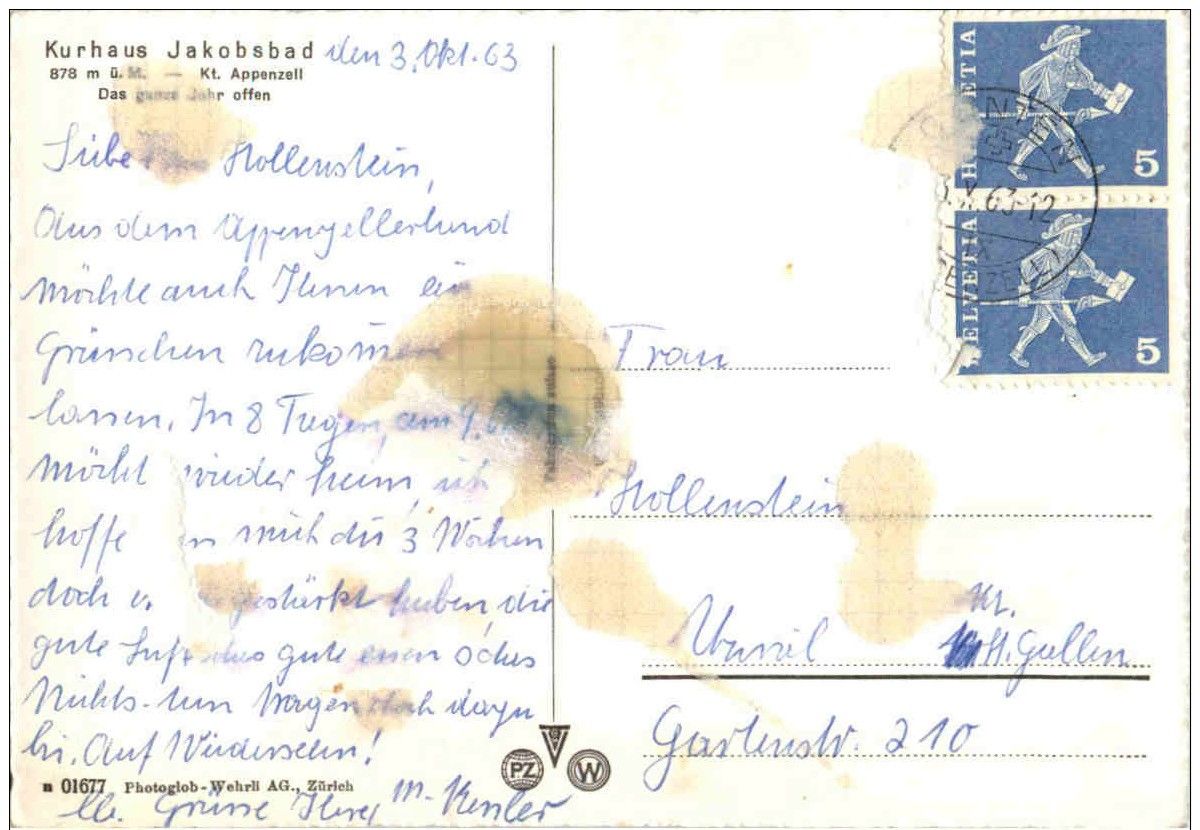 Kurhaus Jakobsbad den 3. Okt. 63
878 m ü. M. — Kt. Appenzell
Das ganze Jahr offen
Liebe Hollenstein,
Aus dem Appenzellerland
möchte auch Ihnen ein
Grüsschen zukommen
lassen. In 8 Tagen, am 9.
möcht wieder heim, ich
hoffe mich die 3 Wochen
doch gestärkt haben, die
gute Luft das gute essen & das
Nichts-tun tragen doch dazu
bei. Auf Wiedersehn!
lb. Grüsse Ihre M. Kesler
n 01677 Photoglob-Wehrli AG., Zürich
PZ W
HELVETIA 5
HELVETIA 5
X. 63-12
Frau
Hollenstein
Uzwil Kt. St. Gallen
Gartenstr. 210